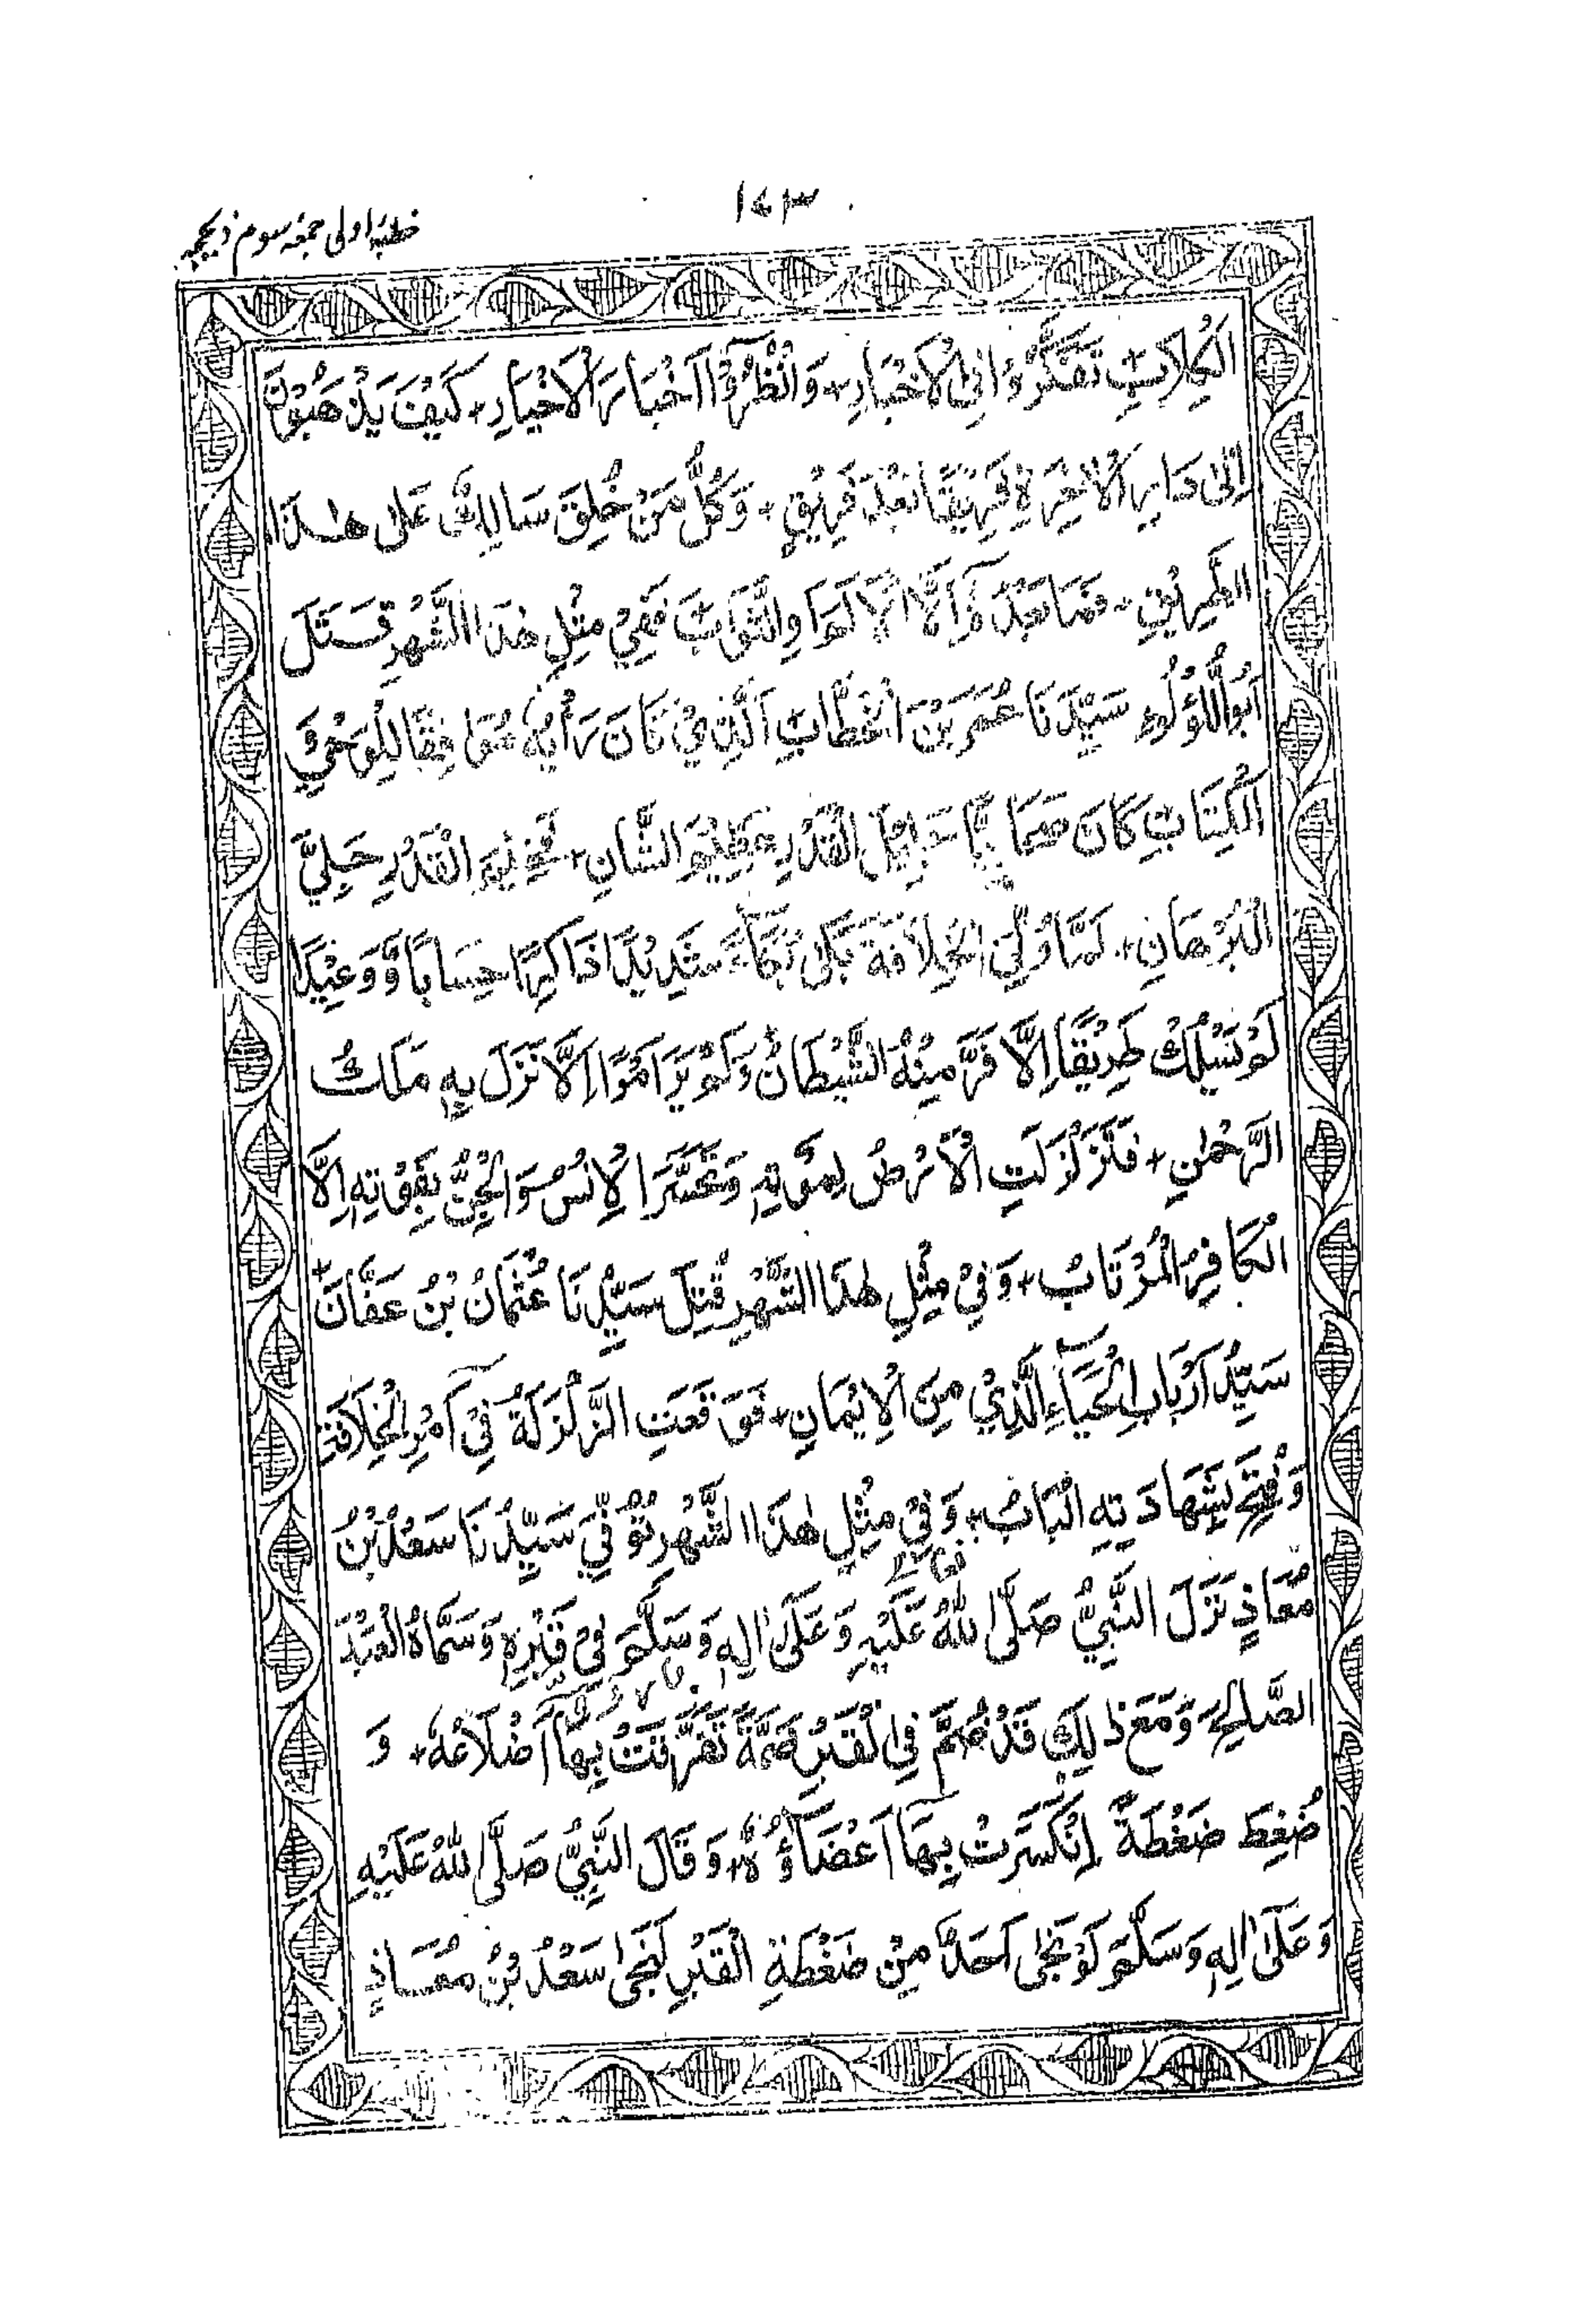 ۱۷۳
خطبۂ اولی جمعہ سوم ذیحجہ
تَفَكَّرُوْا فِي الْاَخْبَارِ + وَانْظُرُوْا اَخْبَارَ الْاَخْيَارِ + كَيْفَ يَذْهَبُوْنَ
اِلٰى دَارِ الْاٰخِرَةِ فَرِيْقًا بَعْدَ فَرِيْقٍ + وَكُلُّ مَنْ خُلِقَ سَالِكٌ عَلٰى هٰذَا
الطَّرِيْقِ + فَفِيْ مِثْلِ هٰذَا الشَّهْرِ قَتَلَ
اَبُو اللُّؤْلُؤِ سَيِّدَنَا عُمَرَ بْنَ الْخَطَّابِ الَّذِيْ كَانَ رَأْيُهٗ مُوَافِقًا لِلْوَحْيِ وَ
الْكِتَابِ كَانَ صَحَابِيًّا جَلِيْلَ الْقَدْرِ عَظِيْمَ الشَّانِ + الْقَدْرِ جَلِيَّ
الْبُرْهَانِ + لَمَّا وُلِّيَ الْخِلَافَةَ بَكٰى بُكَاءً شَدِيْدًا ذَاكِرًا حِسَابًا وَّوَعِيْدًا
لَمْ يَسْلُكْ طَرِيْقًا اِلَّا فَرَّ مِنْهُ الشَّيْطَانُ وَلَمْ يَرَ اَمْرًا اِلَّا نَزَلَ بِهٖ مَلَكُ
الرَّحْمٰنِ + فَتَزَلْزَلَتِ الْاَرْضُ لِمَوْتِهٖ وَتَحَسَّرَ الْاِنْسُ وَالْجِنُّ بِفَوْتِهٖ اِلَّا
الْكَافِرُ الْمُرْتَابُ + وَفِيْ مِثْلِ هٰذَا الشَّهْرِ قُتِلَ سَيِّدُنَا عُثْمَانُ بْنُ عَفَّانَ +
سَيِّدُ اَرْبَابِ الْحَيَاءِ الَّذِيْ مِنَ الْاِيْمَانِ + فَوَقَعَتِ الزَّلْزَلَةُ فِيْ اَمْرِ الْخِلَافَةِ
وَفُتِحَ بِشَهَادَتِهِ الْبَابُ + وَفِيْ مِثْلِ هٰذَا الشَّهْرِ تُوُفِّيَ سَيِّدُنَا سَعْدُ بْنُ
مُعَاذٍ نَزَلَ النَّبِيُّ صَلَّى اللّٰهُ عَلَيْهِ وَعَلٰى اٰلِهٖ وَسَلَّمَ فِيْ قَبْرِهٖ وَسَمَّاهُ الْعَبْدَ
الصَّالِحَ وَمَعَ ذٰلِكَ قَدْ ضُمَّ فِي الْقَبْرِ ضَمَّةً تَفَرَّقَتْ بِهَا اَضْلَاعُهٗ + وَ
ضُغِطَ ضَغْطَةً اِنْكَسَرَتْ بِهَا اَعْضَاؤُهٗ + وَقَالَ النَّبِيُّ صَلَّى اللّٰهُ عَلَيْهِ
وَعَلٰى اٰلِهٖ وَسَلَّمَ لَوْ نَجٰى اَحَدٌ مِنْ ضَغْطَةِ الْقَبْرِ لَنَجٰى سَعْدُ بْنُ مُعَاذٍ